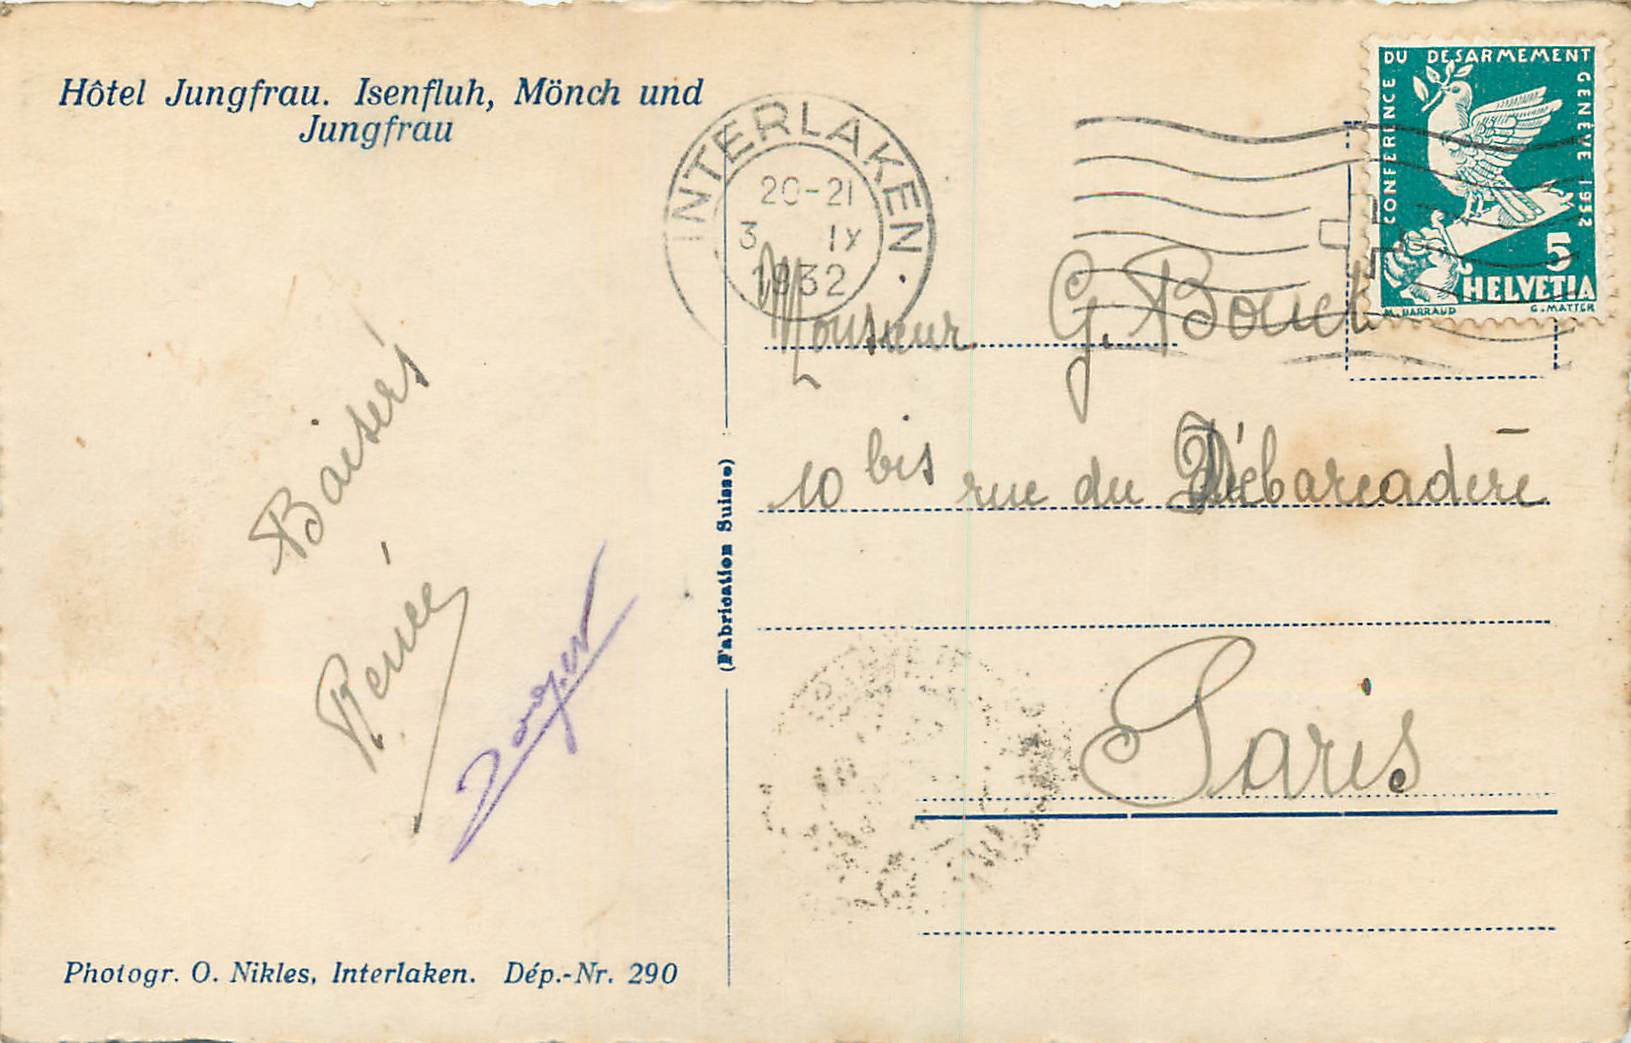 Hôtel Jungfrau. Isenfluh, Mönch und
Jungfrau
INTERLAKEN
20-21
3 IX
1932
CONFERENCE DU DESARMEMENT GENÈVE 1932
5
HELVETIA
M. BARRAUD G. MATTER
Monsieur G. Bouch
10 bis rue du Débarcadère
Paris
Baisers
Renée
Roger
(Fabrication Suisse)
Photogr. O. Nikles, Interlaken. Dép.-Nr. 290